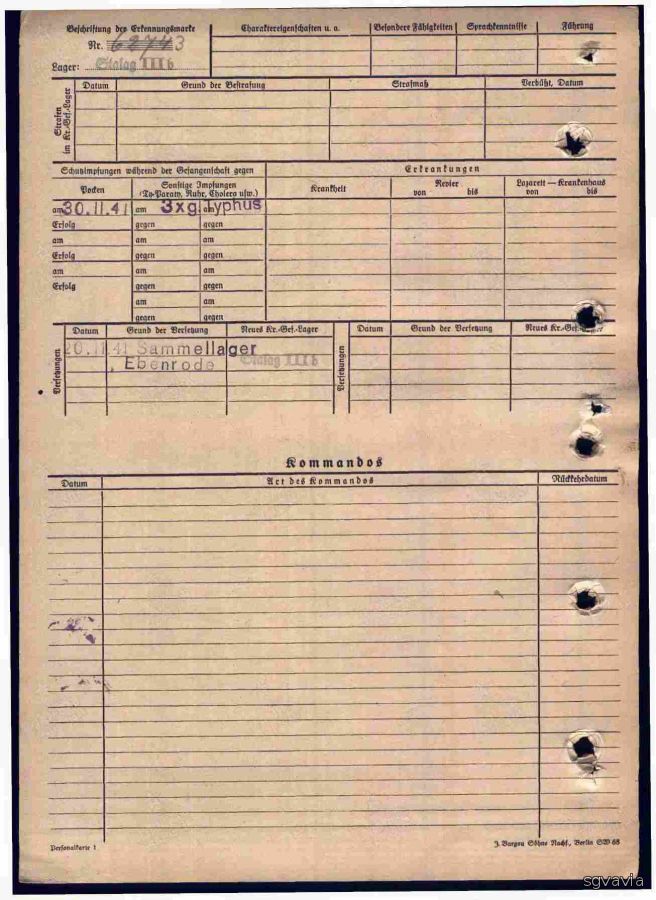 Beschriftung der Erkennungsmarke
Charaktereigenschaften u. a.
Besondere Fähigkeiten
Sprachkenntnisse
Führung
Nr. 62743
Lager: Stalag III b
Strafen im Kr.-Gef.-Lager
Datum
Grund der Bestrafung
Strafmaß
Verbüßt, Datum
Schutzimpfungen während der Gefangenschaft gegen
Erkrankungen
Pocken
Sonstige Impfungen
(Ty-Paraty, Ruhr, Cholera usw.)
Krankheit
Revier
von bis
Lazarett — Krankenhaus
von bis
am 30.11.41
am 3xg. am Typhus
Erfolg
gegen
gegen
am
am
am
Erfolg
gegen
gegen
am
am
am
Erfolg
gegen
gegen
am
am
gegen
gegen
Versetzungen
Datum
Grund der Versetzung
Neues Kr.-Gef.-Lager
Versetzungen
Datum
Grund der Versetzung
Neues Kr.-Gef.-Lager
20.11.41 Sammellager
Ebenrode
Stalag III b
Kommandos
Datum
Art des Kommandos
Rückkehrdatum
Personalkarte 1
J. Bargou Söhne Nachf., Berlin SW 68
sgvavia